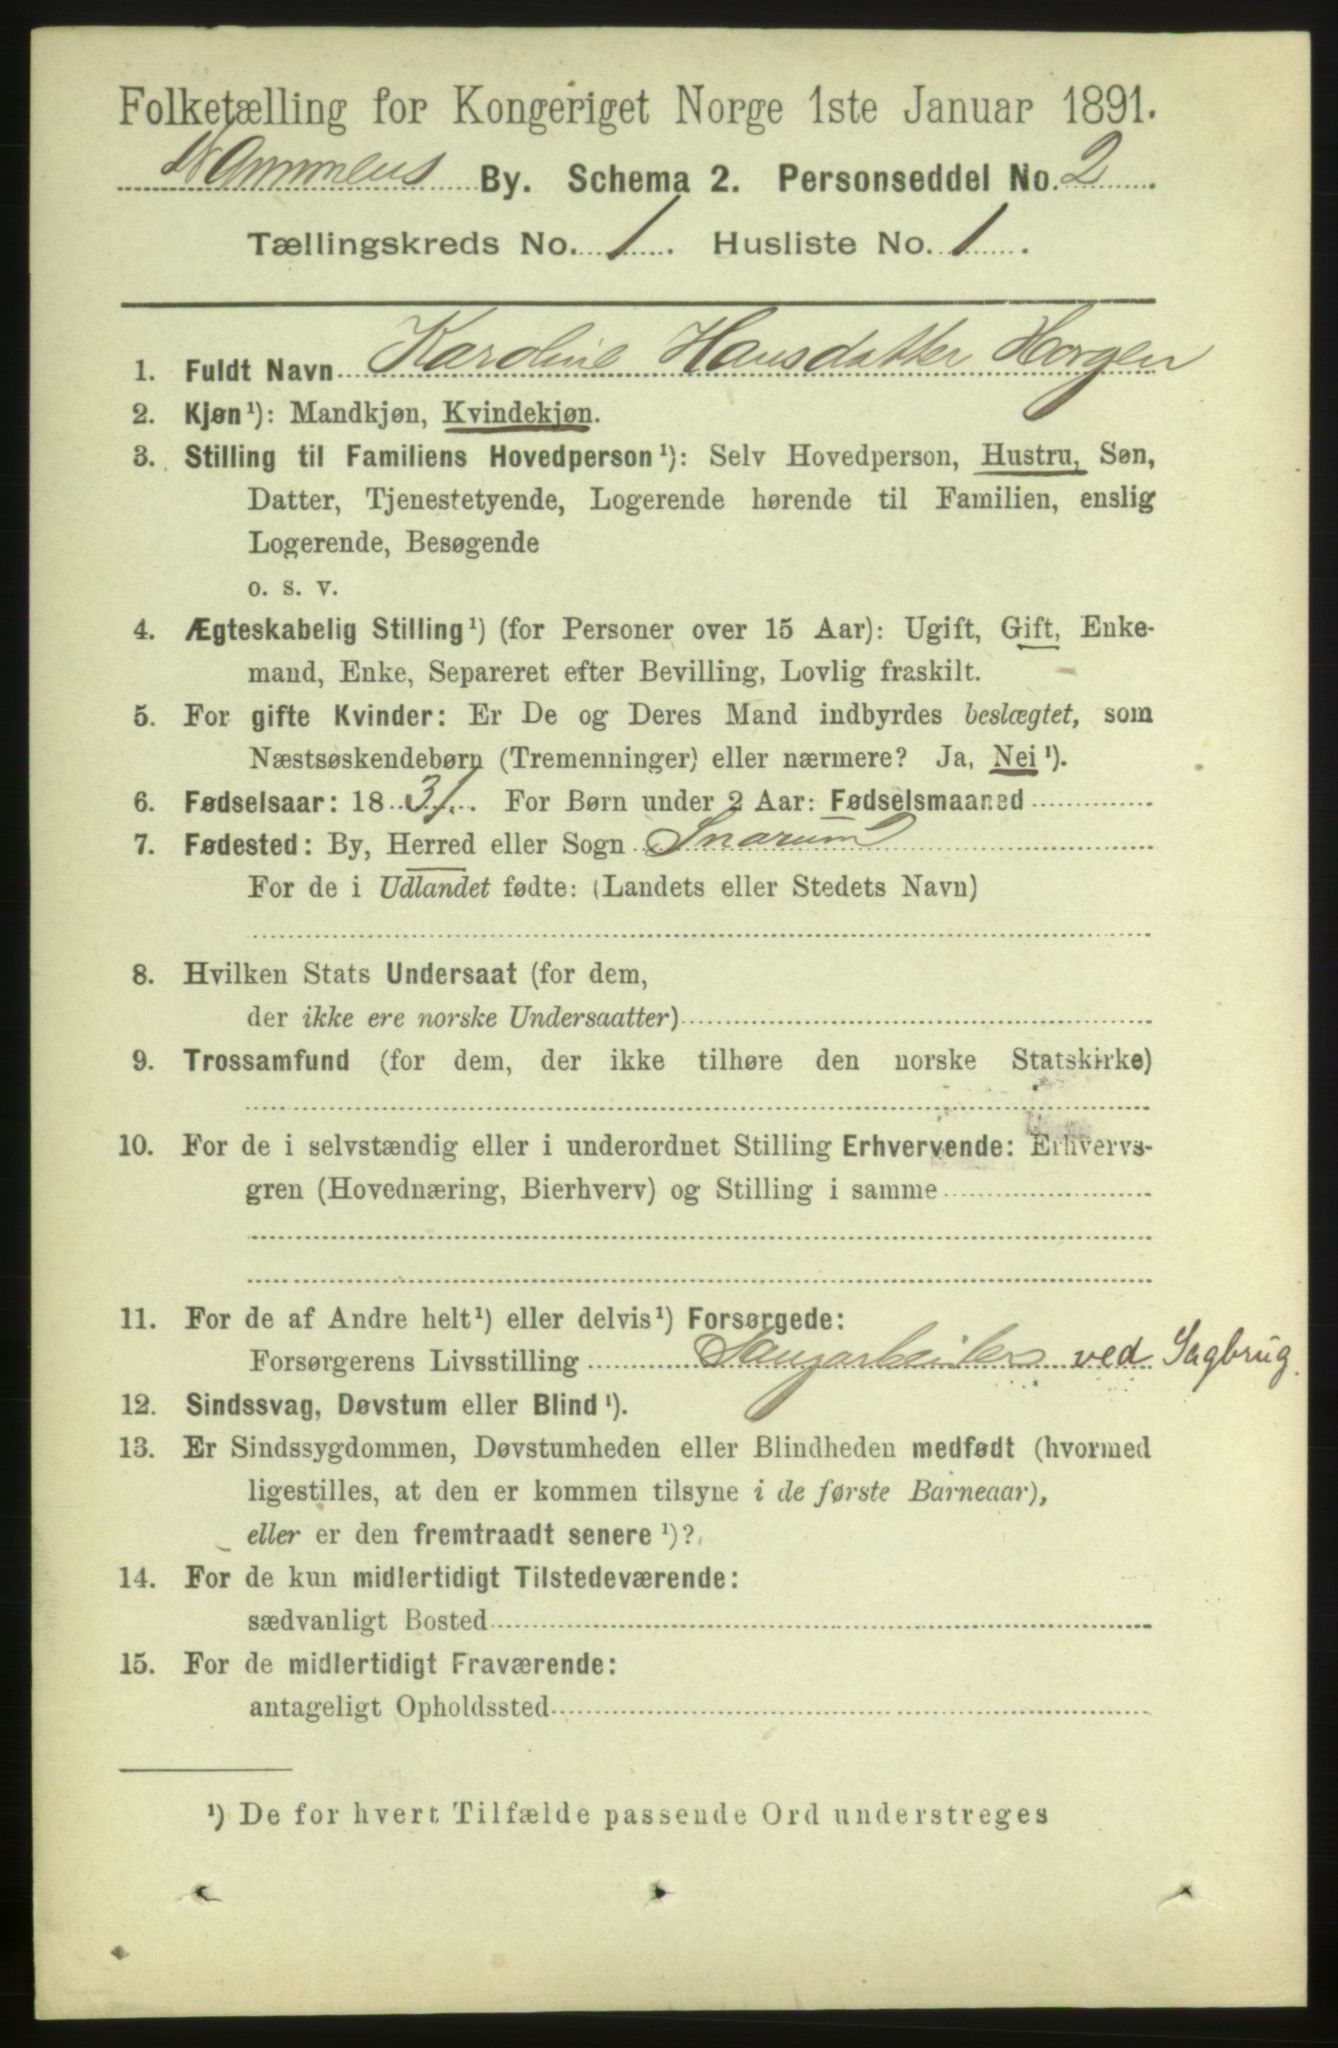 Folketælling for Kongeriget Norge 1ste Januar 1891.
Drammens By. Schema 2. Personseddel No. 2
Tællingskreds No. 1. Husliste No. 1.
1. Fuldt Navn Karoline Hansdatter Horgen
2. Kjøn¹): Mandkjøn, Kvindekjøn.
3. Stilling til Familiens Hovedperson¹): Selv Hovedperson, Hustru, Søn,
Datter, Tjenestetyende, Logerende hørende til Familien, enslig
Logerende, Besøgende
o. s. v.
4. Ægteskabelig Stilling¹) (for Personer over 15 Aar): Ugift, Gift, Enke-
mand, Enke, Separeret efter Bevilling, Lovlig fraskilt.
5. For gifte Kvinder: Er De og Deres Mand indbyrdes beslægtet, som
Næstsøskendebørn (Tremenninger) eller nærmere? Ja, Nei¹).
6. Fødselsaar: 1831. For Børn under 2 Aar: Fødselsmaaned
7. Fødested: By, Herred eller Sogn Snarum
For de i Udlandet fødte: (Landets eller Stedets Navn)
8. Hvilken Stats Undersaat (for dem,
der ikke ere norske Undersaatter)
9. Trossamfund (for dem, der ikke tilhøre den norske Statskirke)
10. For de i selvstændig eller i underordnet Stilling Erhvervende: Erhvervs-
gren (Hovednæring, Bierhverv) og Stilling i samme
11. For de af Andre helt¹) eller delvis¹) Forsørgede:
Forsørgerens Livsstilling Saugarbeider ved Sagbrug.
12. Sindssvag, Døvstum eller Blind¹).
13. Er Sindssygdommen, Døvstumheden eller Blindheden medfødt (hvormed
ligestilles, at den er kommen tilsyne i de første Barneaar),
eller er den fremtraadt senere¹)?
14. For de kun midlertidigt Tilstedeværende:
sædvanligt Bosted
15. For de midlertidigt Fraværende:
antageligt Opholdssted
¹) De for hvert Tilfælde passende Ord understreges